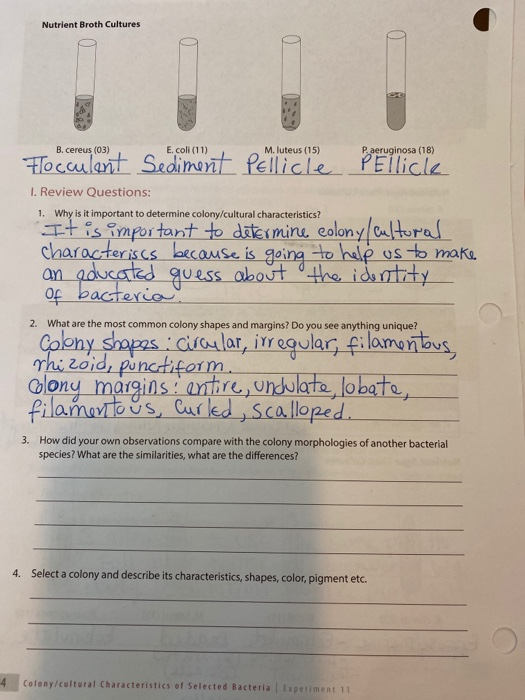 Nutrient Broth Cultures
B. cereus (03) E. coli (11) M. luteus (15) P. aeruginosa (18)
Flocculant Sediment Pellicle PEllicle
I. Review Questions:
1. Why is it important to determine colony/cultural characteristics?
It is important to determine colony/cultural
characteriscs because is going to help us to make
an educated guess about the identity
of bacteria.
2. What are the most common colony shapes and margins? Do you see anything unique?
Colony shapes: circular, irregular, filamentous,
rhizoid, punctiform.
Colony margins: entire, undulate, lobate,
filamentous, Curled, scalloped.
3. How did your own observations compare with the colony morphologies of another bacterial
species? What are the similarities, what are the differences?
4. Select a colony and describe its characteristics, shapes, color, pigment etc.
4 Colony/cultural Characteristics of Selected Bacteria | Experiment 11